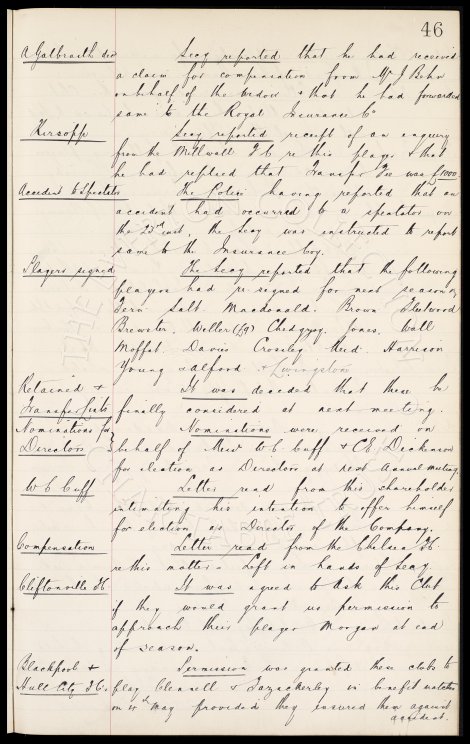 46
A Galbraith decd Secy reported that he had received
a claim for compensation from Mr J Bohr
on behalf of the Widow & that he had forwarded
same to the Royal Insurance Co
Kirsopp Secy reported receipt of an enquiry
from the Millwall F C re this player & that
he had replied that Transfer Fee was £1000
Accident to Spectator The Police having reported that an
accident had occurred to a spectator on
the 23rd inst, the Secy was instructed to report
same to the Insurance Coy.
Players signed The Secy reported that the following
players had re-signed for next season
Fern Salt Macdonald. Brown Fleetwood
Brewster. Weller (L9) Chedgzoy. Jones. Wall
Moffat. Davies Crossley Reid. Harrison
Young Alford & Livingston
Retained & It was decided that these be
Transfer Lists finally considered at next meeting.
Nominations for Nominations were received on
Directors behalf of Messrs W C Cuff & C E Dickinson
for election as Directors at next annual meeting
W C Cuff Letter read from this shareholder
intimating his intention to offer himself
for election as Director of the Company.
Compensation Letter read from the Chelsea FC.
re this matter - Left in hands of Secy
Cliftonville FC It was agreed to ask this Club
if they would grant us permission to
approach their player Morgan at end
of season.
Blackpool & Permission was granted these clubs to
Hull City F.C. play Clennell & Fazackerley in benefit matches
on May provided they insured them against
accident.